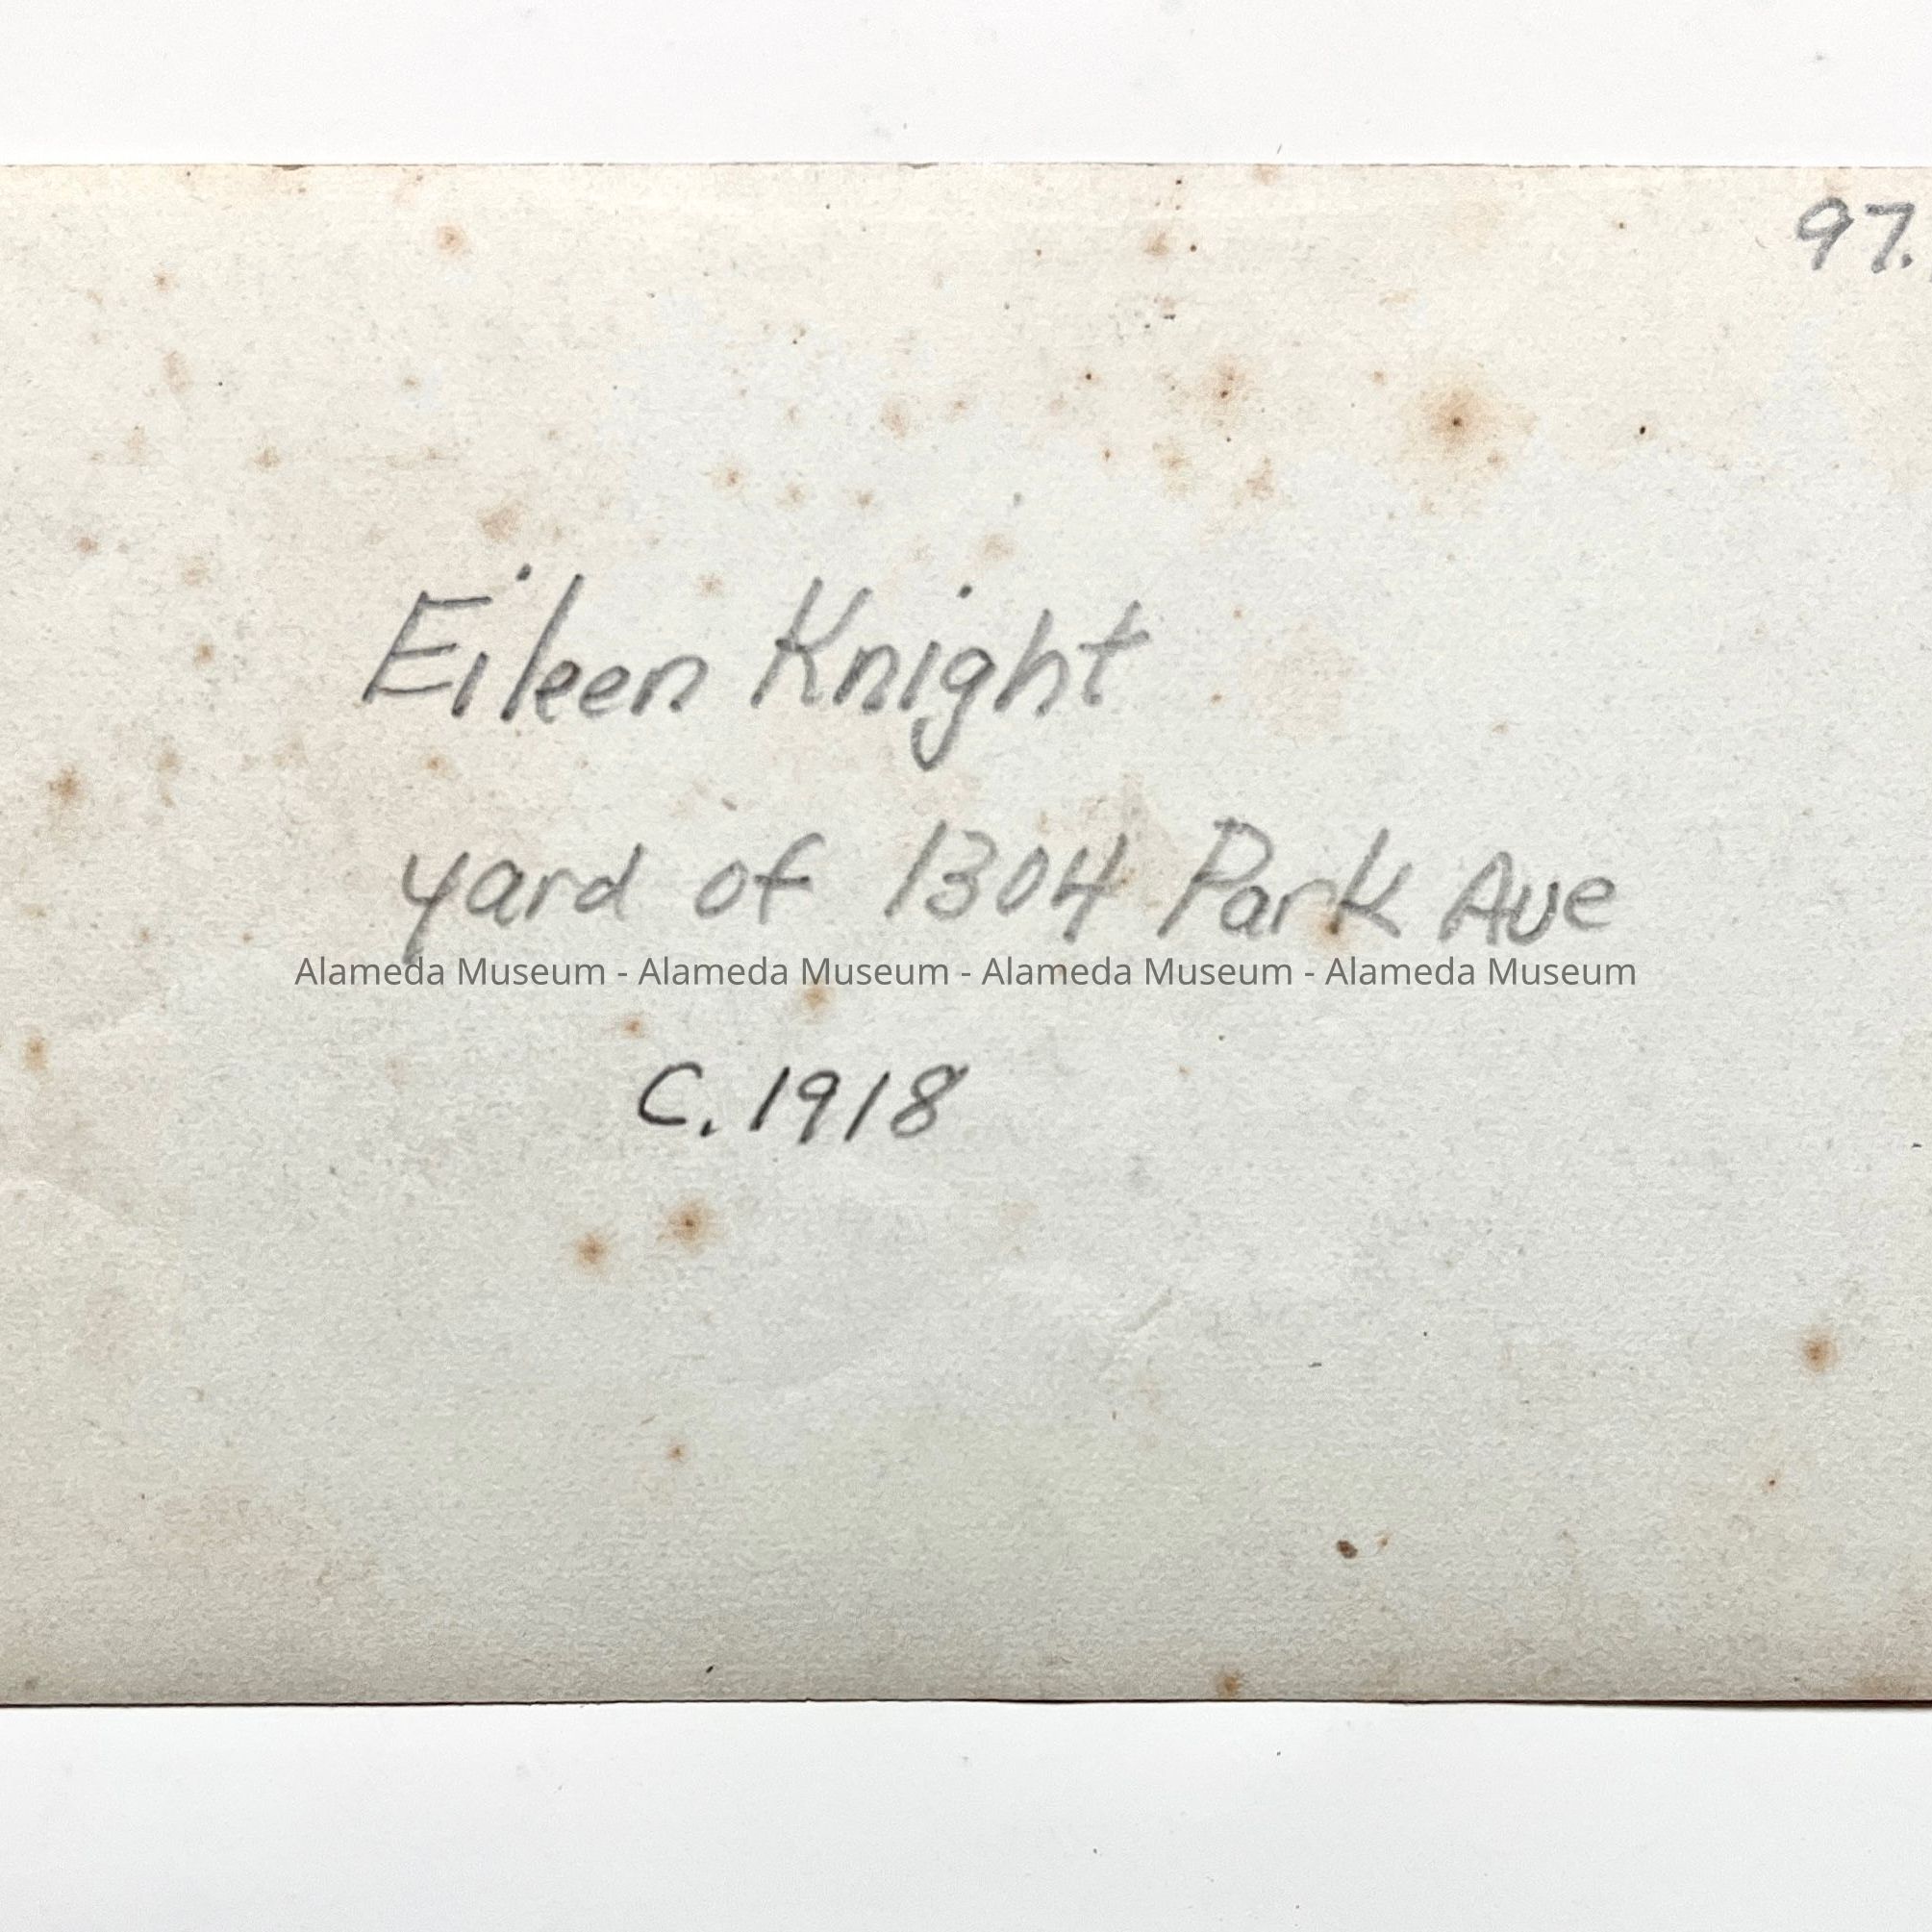 97.
Eileen Knight
yard of 1304 Park Ave
Alameda Museum - Alameda Museum - Alameda Museum - Alameda Museum
C. 1918